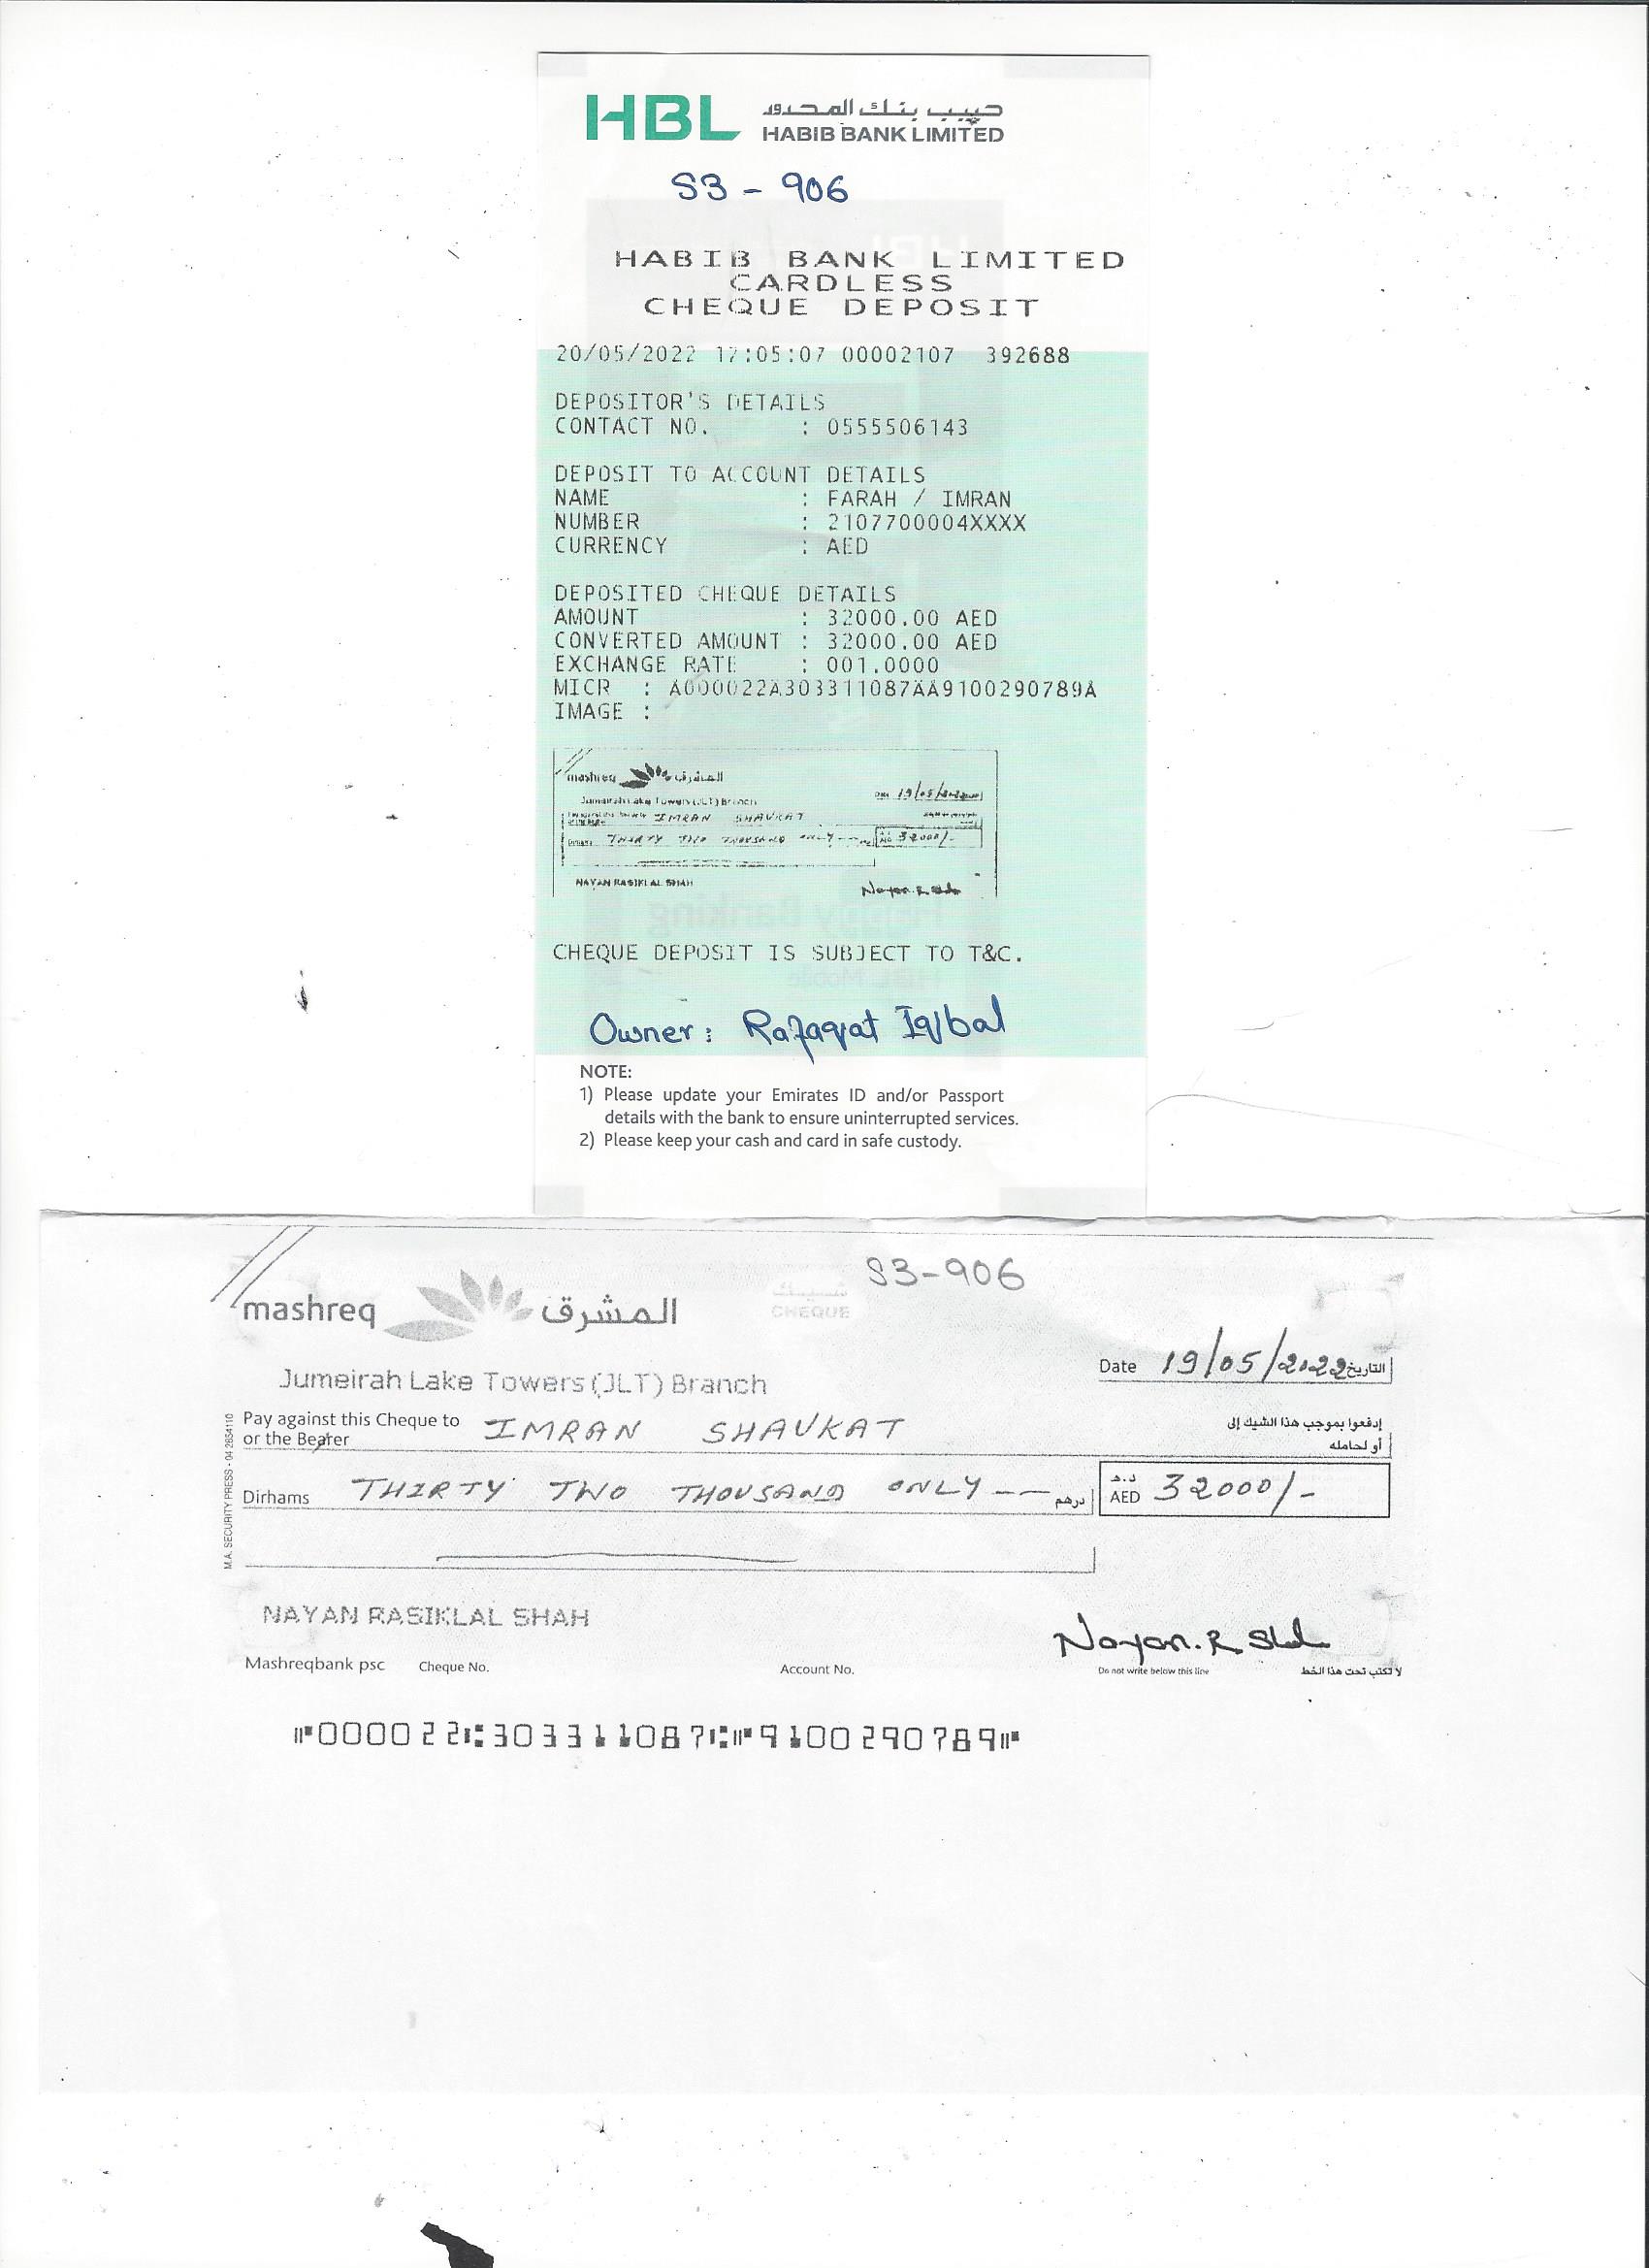 HBL حبيب بنك المحدود
HABIB BANK LIMITED
S3 - 906
HABIB BANK LIMITED
CARDLESS
CHEQUE DEPOSIT
20/05/2022 17:05:07 00002107 392688
DEPOSITOR'S DETAILS
CONTACT NO. : 0555506143
DEPOSIT TO ACCOUNT DETAILS
NAME : FARAH / IMRAN
NUMBER : 2107700004XXXX
CURRENCY : AED
DEPOSITED CHEQUE DETAILS
AMOUNT : 32000.00 AED
CONVERTED AMOUNT : 32000.00 AED
EXCHANGE RATE : 001.0000
MICR : A000022A303311087AA9100290789A
IMAGE :
mashreq المشرق
Jumeirah Lake Towers (JLT) Branch
19/05/2022
IMRAN SHAVKAT
THIRTY TWO THOUSAND ONLY -- 32000/-
NAYAN RASIKLAL SHAH
Nayan. R Shah
CHEQUE DEPOSIT IS SUBJECT TO T&C.
Owner: Rafaqat Iqbal
NOTE:
1) Please update your Emirates ID and/or Passport
details with the bank to ensure uninterrupted services.
2) Please keep your cash and card in safe custody.
S3-906
mashreq المشرق
شيك
CHEQUE
Date 19/05/2022 التاريخ
Jumeirah Lake Towers (JLT) Branch
Pay against this Cheque to IMRAN SHAVKAT إدفعوا بموجب هذا الشيك إلى
or the Bearer أو لحامله
Dirhams THIRTY TWO THOUSAND ONLY -- درهم د.م AED 32000/-
M.A. SECURITY PRESS - 04 2654110
NAYAN RASIKLAL SHAH
Nayan. R Shah
Mashreqbank psc Cheque No. Account No. Do not write below this line لا تكتب تحت هذا الخط
⑈000022⑆303311087⑆⑈9100290789⑈